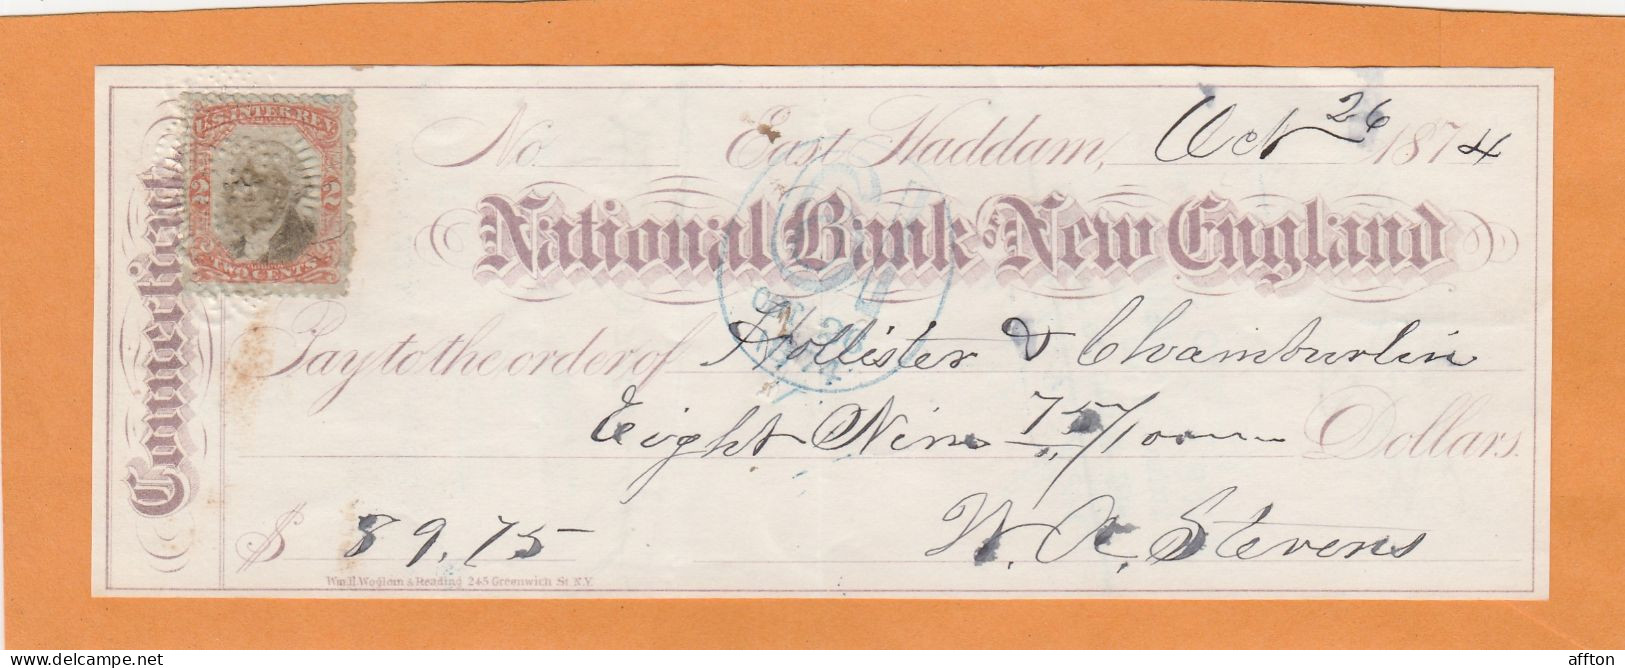 Connecticut
U.S. INTER. REV.
2 2
TWO CENTS
No East Haddam, Oct 26 1874
National Bank of New England
OCT 26
1874
Pay to the order of Hollister & Chamburlin
Eight Nine 75/100 Dollars
$ 89.75
W. R. Stevens
Wm. H. Woglom & Reading 245 Greenwich St. N.Y.
www.delcampe.net
affton